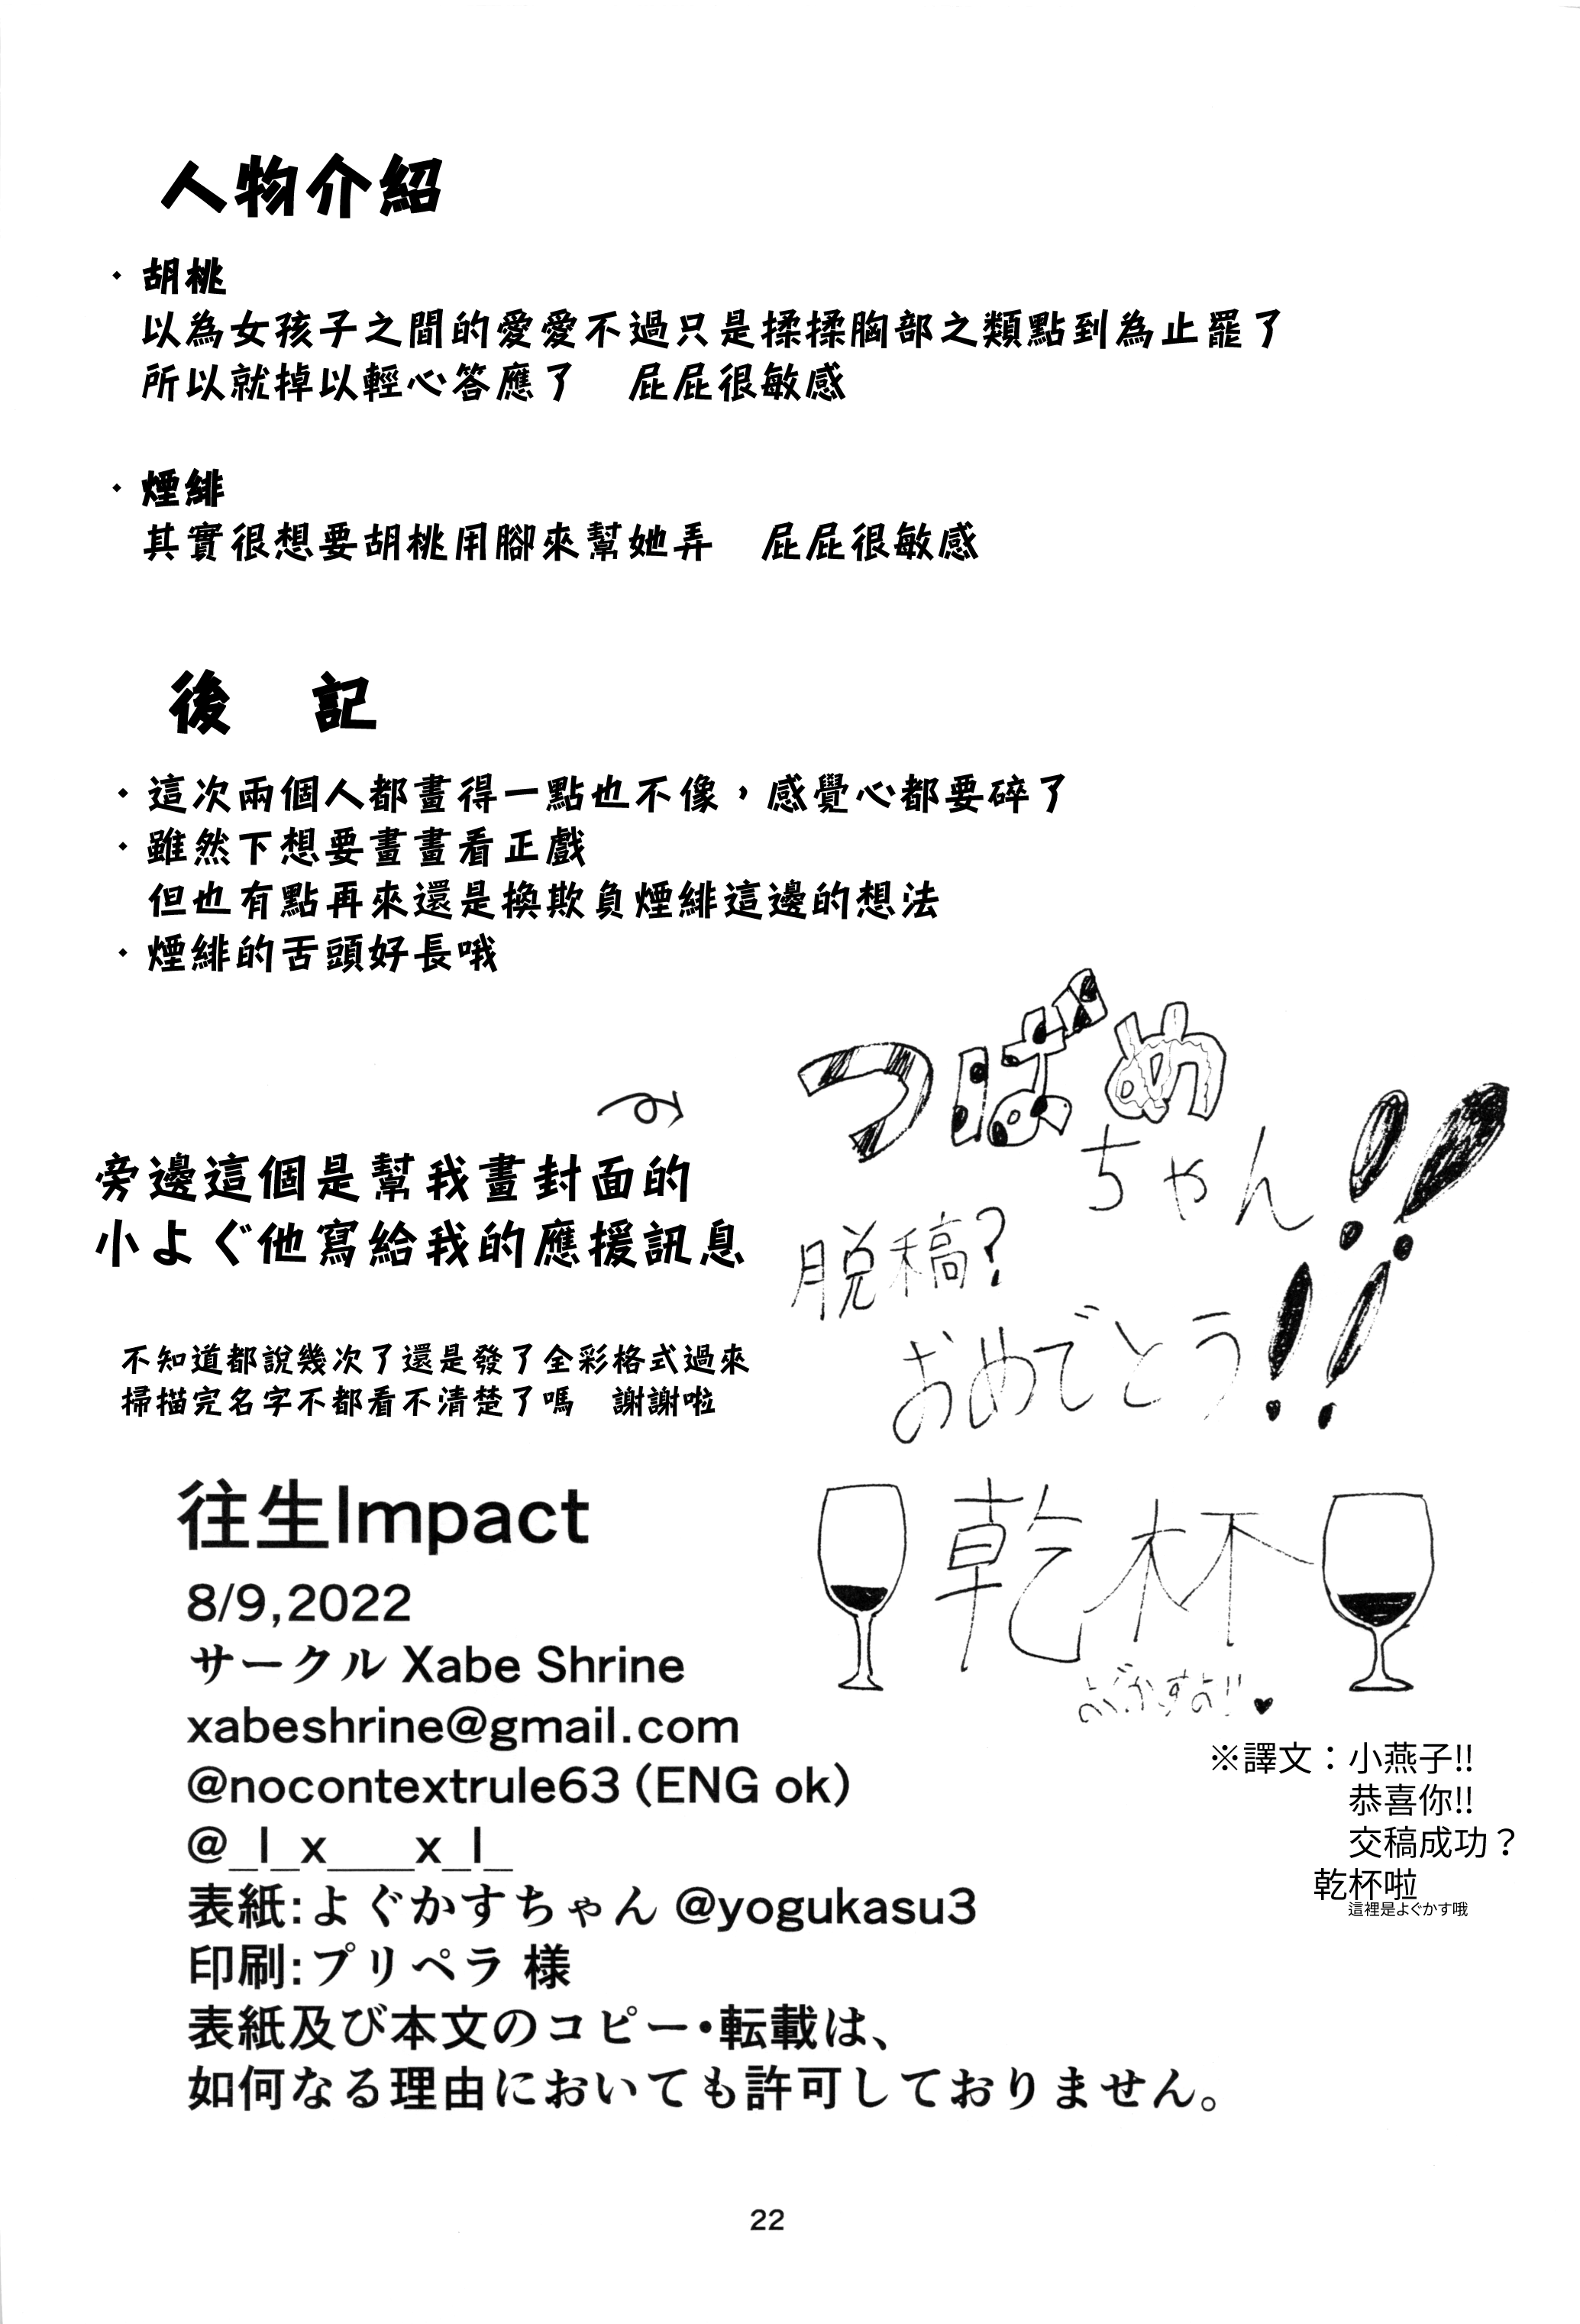 人物介紹
・胡桃
以為女孩子之間的愛愛不過只是揉揉胸部之類點到為止罷了
所以就掉以輕心答應了　屁屁很敏感
・煙緋
其實很想要胡桃用腳來幫她弄　屁屁很敏感
後　記
・這次兩個人都畫得一點也不像，感覺心都要碎了
・雖然下想要畫畫看正戲
但也有點再來還是換欺負煙緋這邊的想法
・煙緋的舌頭好長哦
旁邊這個是幫我畫封面的
小よぐ他寫給我的應援訊息
不知道都說幾次了還是發了全彩格式過來
掃描完名字不都看不清楚了嗎　謝謝啦
つばめ
ちゃん!!
脱稿?
おめでとう!!
乾杯
よぐかすよ!!♥
※譯文：小燕子!!
恭喜你!!
交稿成功？
乾杯啦
這裡是よぐかす哦
往生Impact
8/9,2022
サークル Xabe Shrine
xabeshrine@gmail.com
@nocontextrule63 (ENG ok)
@_l_x___x_l_
表紙:よぐかすちゃん @yogukasu3
印刷:プリペラ 様
表紙及び本文のコピー・転載は、
如何なる理由においても許可しておりません。
22